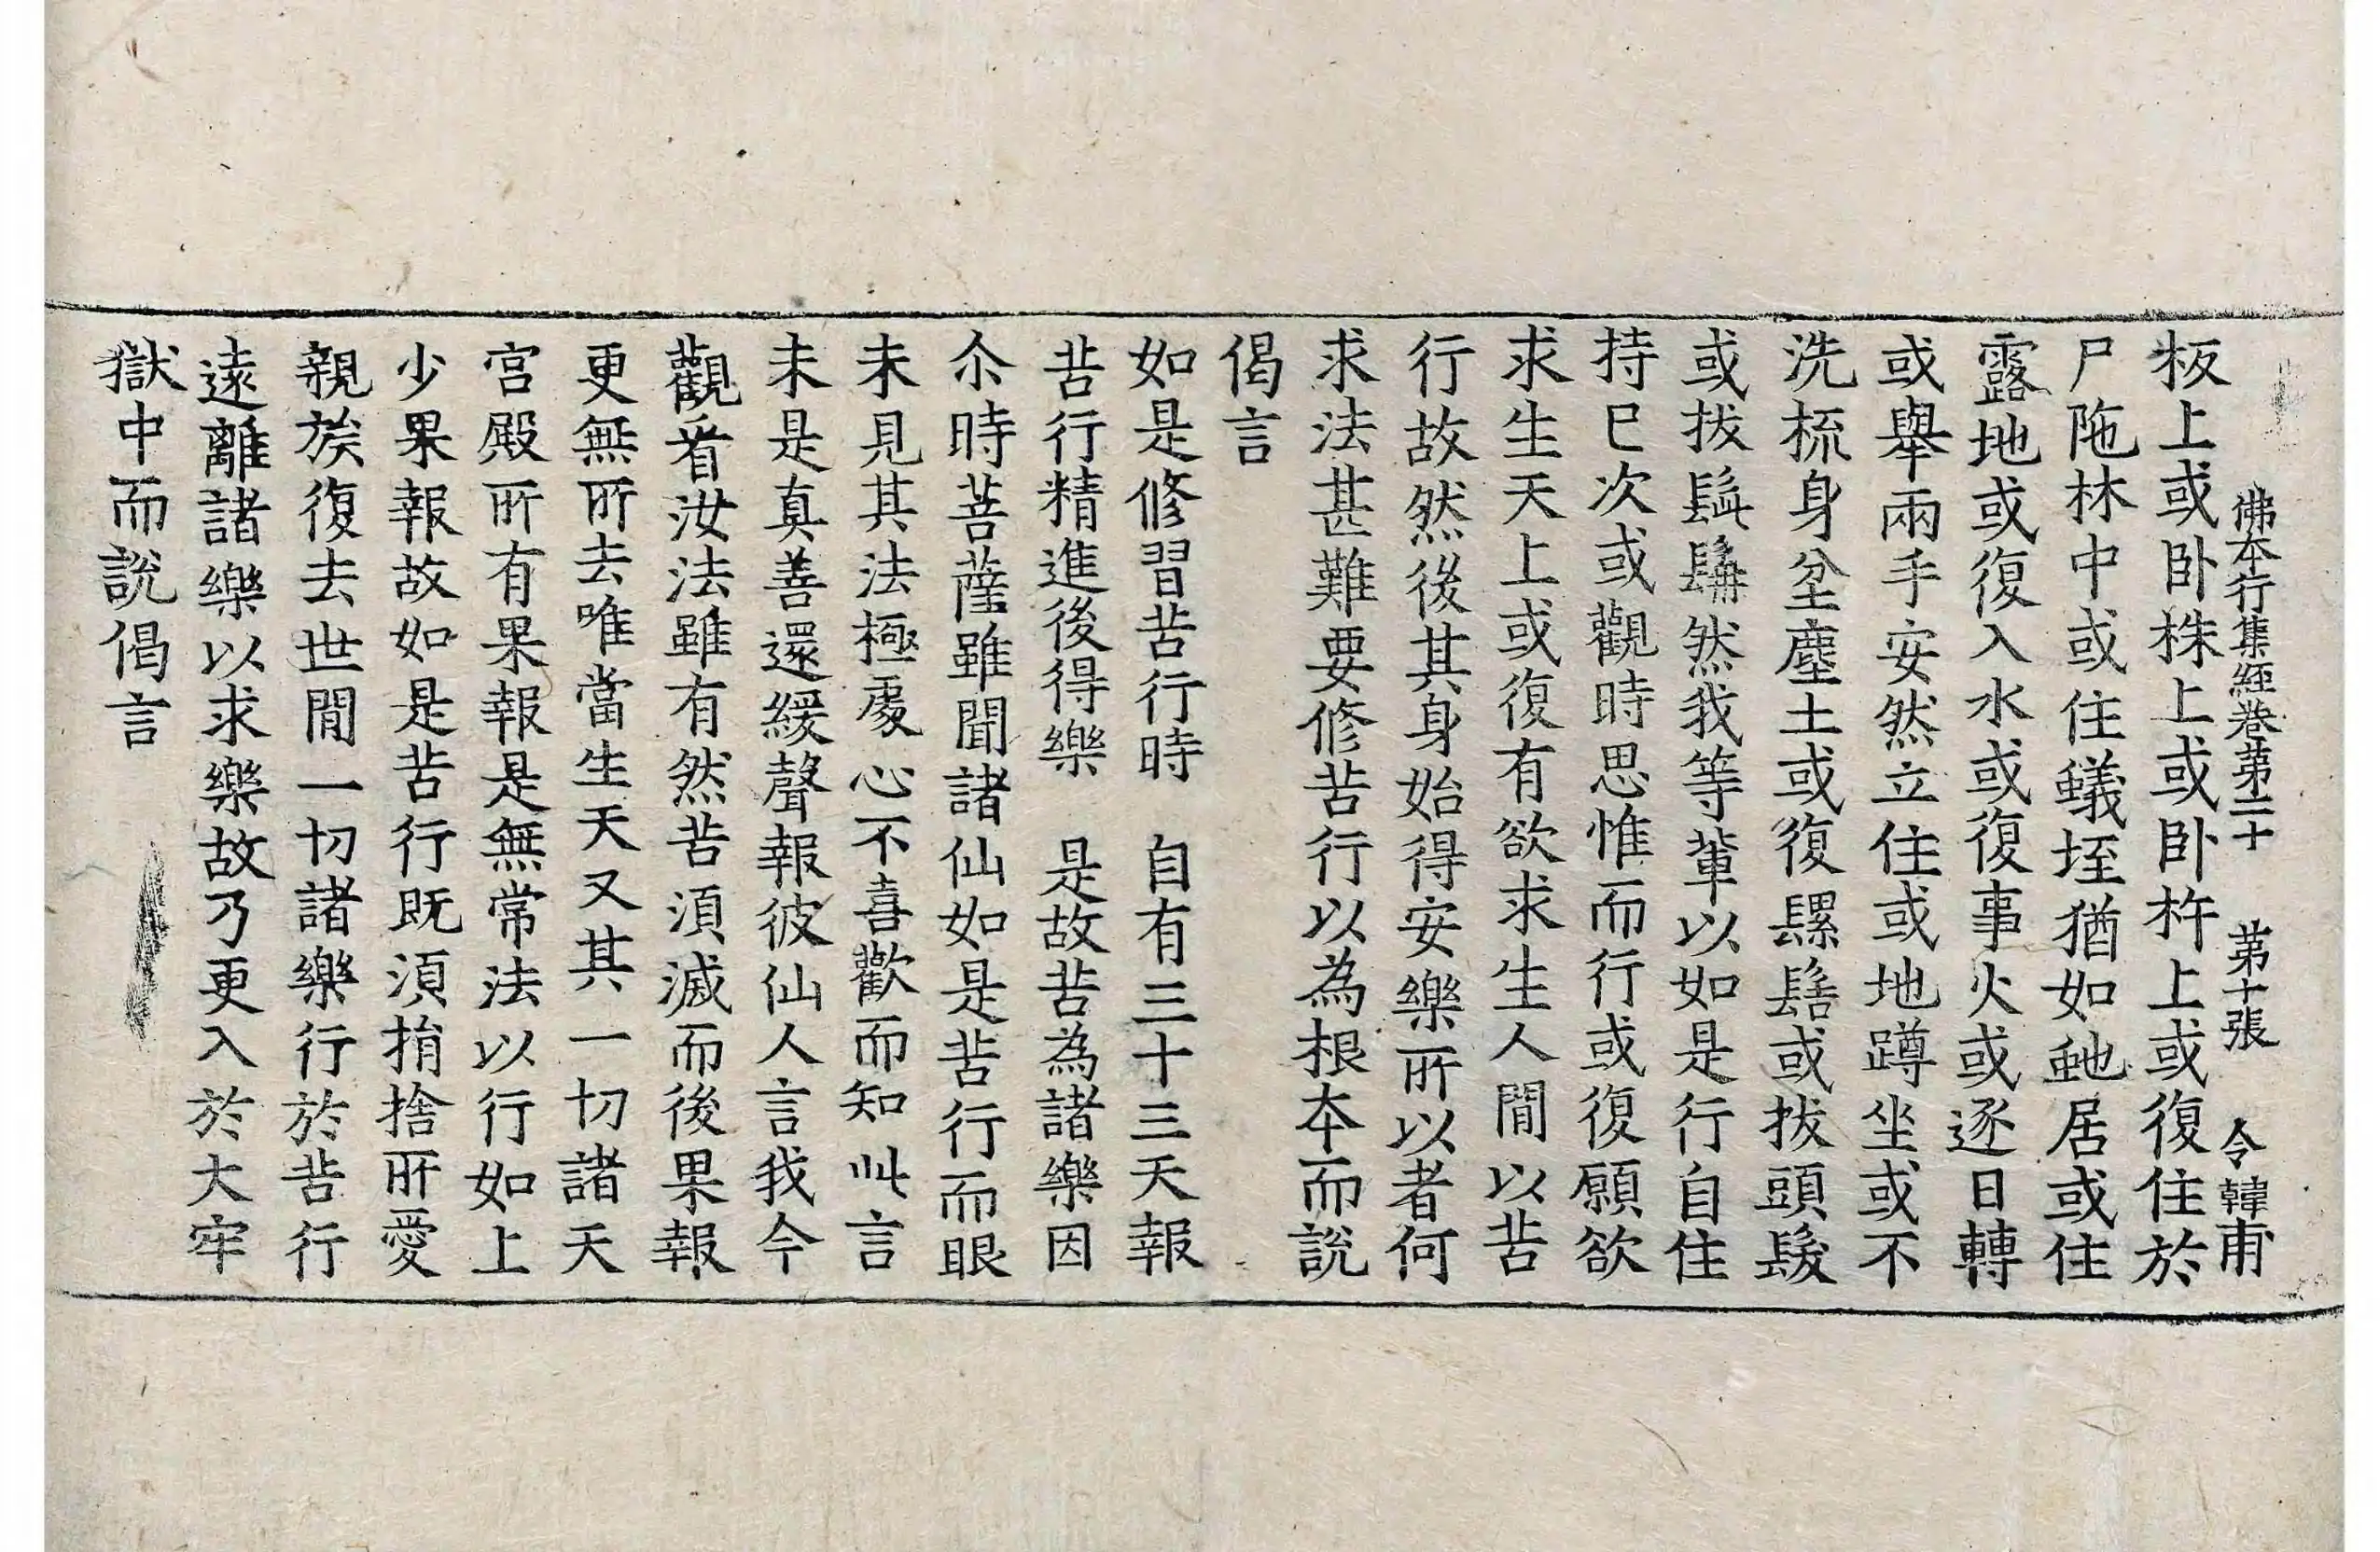 佛本行集經卷第二十 第十張 令韓甫
板上或卧株上或卧杵上或復住於
尸陁林中或住蟻垤猶如虵居或住
露地或復入水或復事火或逐日轉
或舉兩手安然立住或地蹲坐或不
洗梳身坌塵土或復騾髻或拔頭髮
或拔鬚鬢然我等輩以如是行自住
持已次或觀時思惟而行或復願欲
求生天上或復有欲求生人閒以苦
行故然後其身始得安樂所以者何
求法甚難要修苦行以為根本而說
偈言
如是修習苦行時 自有三十三天報
苦行精進後得樂 是故苦為諸樂因
尒時菩薩雖聞諸仙如是苦行而眼
未見其法極處心不喜歡而知此言
未是真善還緩聲報彼仙人言我今
觀看汝法雖有然苦湏滅而後果報
更無所去唯當生天又其一切諸天
宮殿所有果報是無常法以行如上
少果報故如是苦行既湏捐捨所愛
親族復去世閒一切諸樂行於苦行
遠離諸樂以求樂故乃更入於大牢
獄中而說偈言